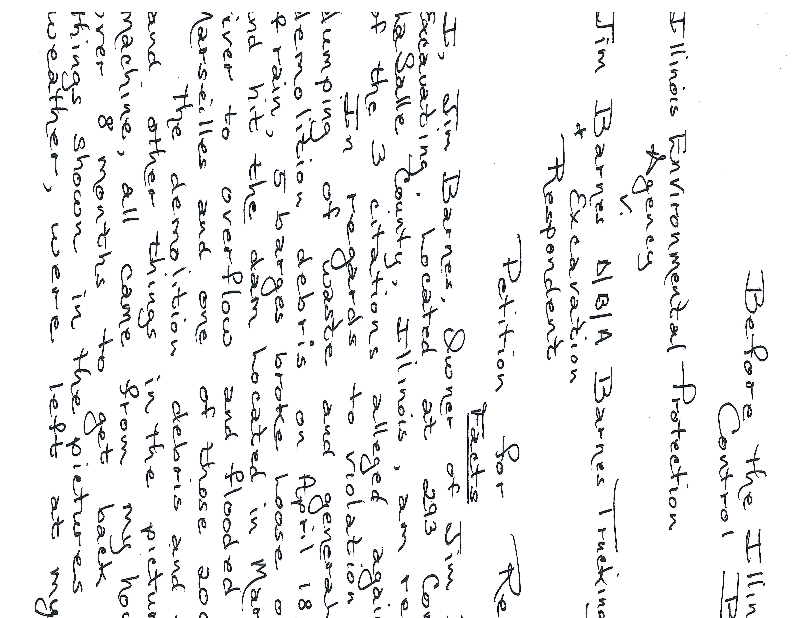 Before the Illin
Control B
Illinois Environmental Protection
Agency
v.
Jim Barnes D/B/A Barnes Trucking
+ Excavation
Respondent
Petition for Re
Facts
I, Jim Barnes, Owner of Jim
Excavating, Located at 293 Co
LaSalle County, Illinois, am re
of the 3 citations alleged again
In regards to violation
dumping of waste and general
demolition debris on April 18
of rain, 5 barges broke loose o
and hit the dam located in Mar
river to overflow and flooded
Marseilles and one of those 200
The demolition debris and
and other things in the pictu
machine, all came from my ho
over 8 months to get back
things shown in the pictures
weather, were left at my